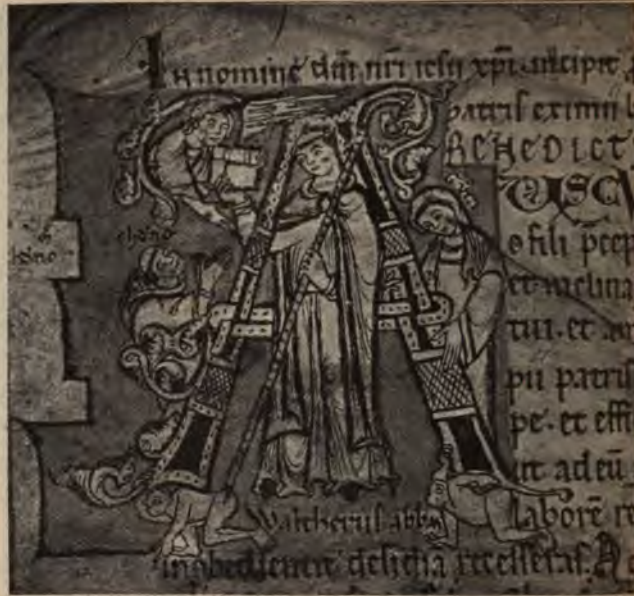 In nomine dni nri iesu xpi. incipit
patris eximii b
BENEDICT
AUSCV
o fili pcep
et inclina
tui. et
pii patris
pe. et effi
ut ad eū
laborē re
Walcherus abbas
inobedientie desidia recesseras. A